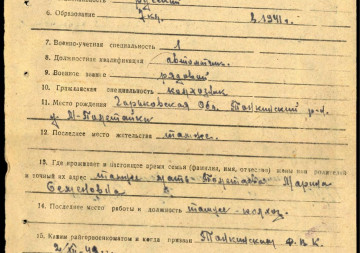 русский
6. Образование 7 кл. в 1941 г.
7. Военно-учетная специальность 1
8. Должностная квалификация автоматчик.
9. Военное звание рядовой
10. Гражданская специальность колхозник
11. Место рождения Горьковская Обл. Тонкинский р-н.
12. Последнее место жительства там же.
13. Где проживает в настоящее время семья (фамилия, имя, отчество) жены или родителей
и точный их адрес там же мать
14. Последнее место работы и должность там же колхоз
15. Каким райгорвоенкоматом и когда призван Тонкинским